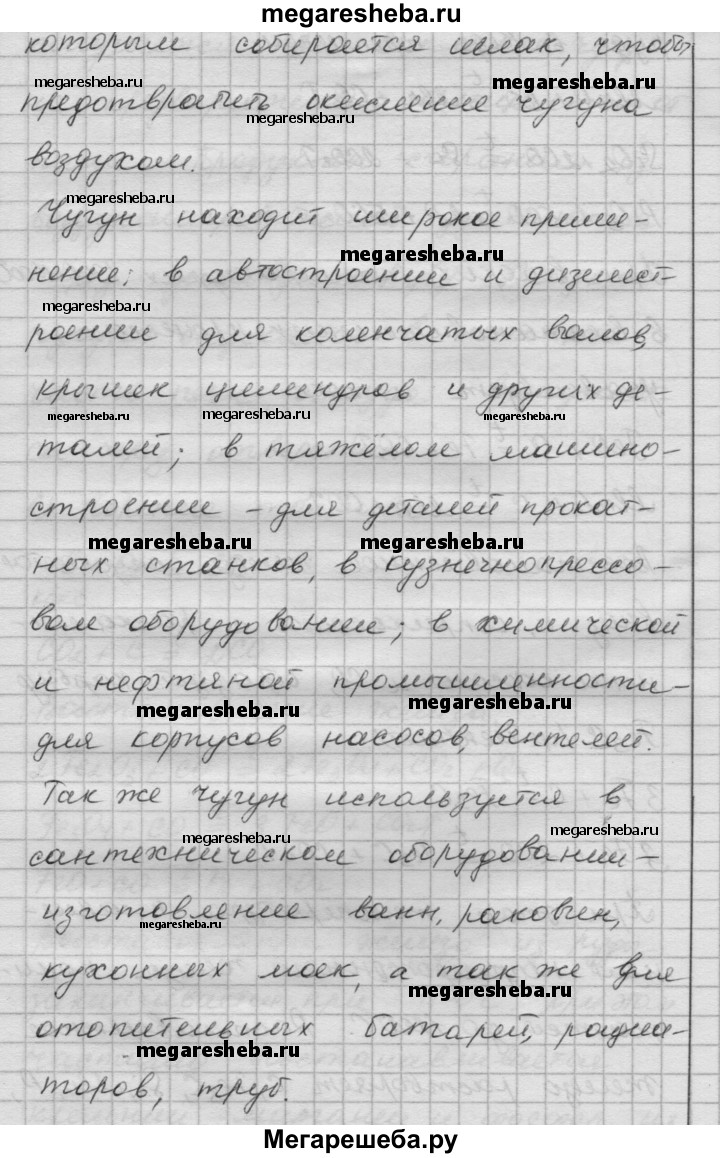 megaresheba.ru
которым собирается шлак, чтобы
megaresheba.ru megaresheba.ru
предотвратить окисление чугуна
megaresheba.ru
воздухом.
megaresheba.ru
Чугун находит широкое приме-
megaresheba.ru
нение: в автостроении и дизелест-
megaresheba.ru
роении для коленчатых валов,
крышек цилиндров и других де-
megaresheba.ru megaresheba.ru megaresheba.ru
талей; в тяжёлом машино-
строении – для деталей прокат-
megaresheba.ru megaresheba.ru
ных станков, в кузнечнопрессо-
вом оборудовании; в химической
и нефтяной промышленности-
megaresheba.ru megaresheba.ru
для корпусов насосов, вентелей.
Так же чугун используется в
megaresheba.ru megaresheba.ru
сантехническом оборудовании-
изготовление ванн, раковин,
megaresheba.ru
кухонных моек, а так же для
megaresheba.ru
отопительных батарей, радиа-
megaresheba.ru
торов, труб.
Мегарешеба.ру